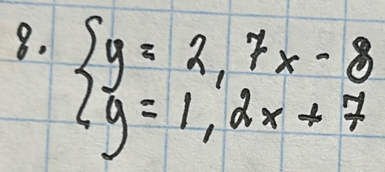 8. { y = 2,7x - 8
y = 1,2x + 7